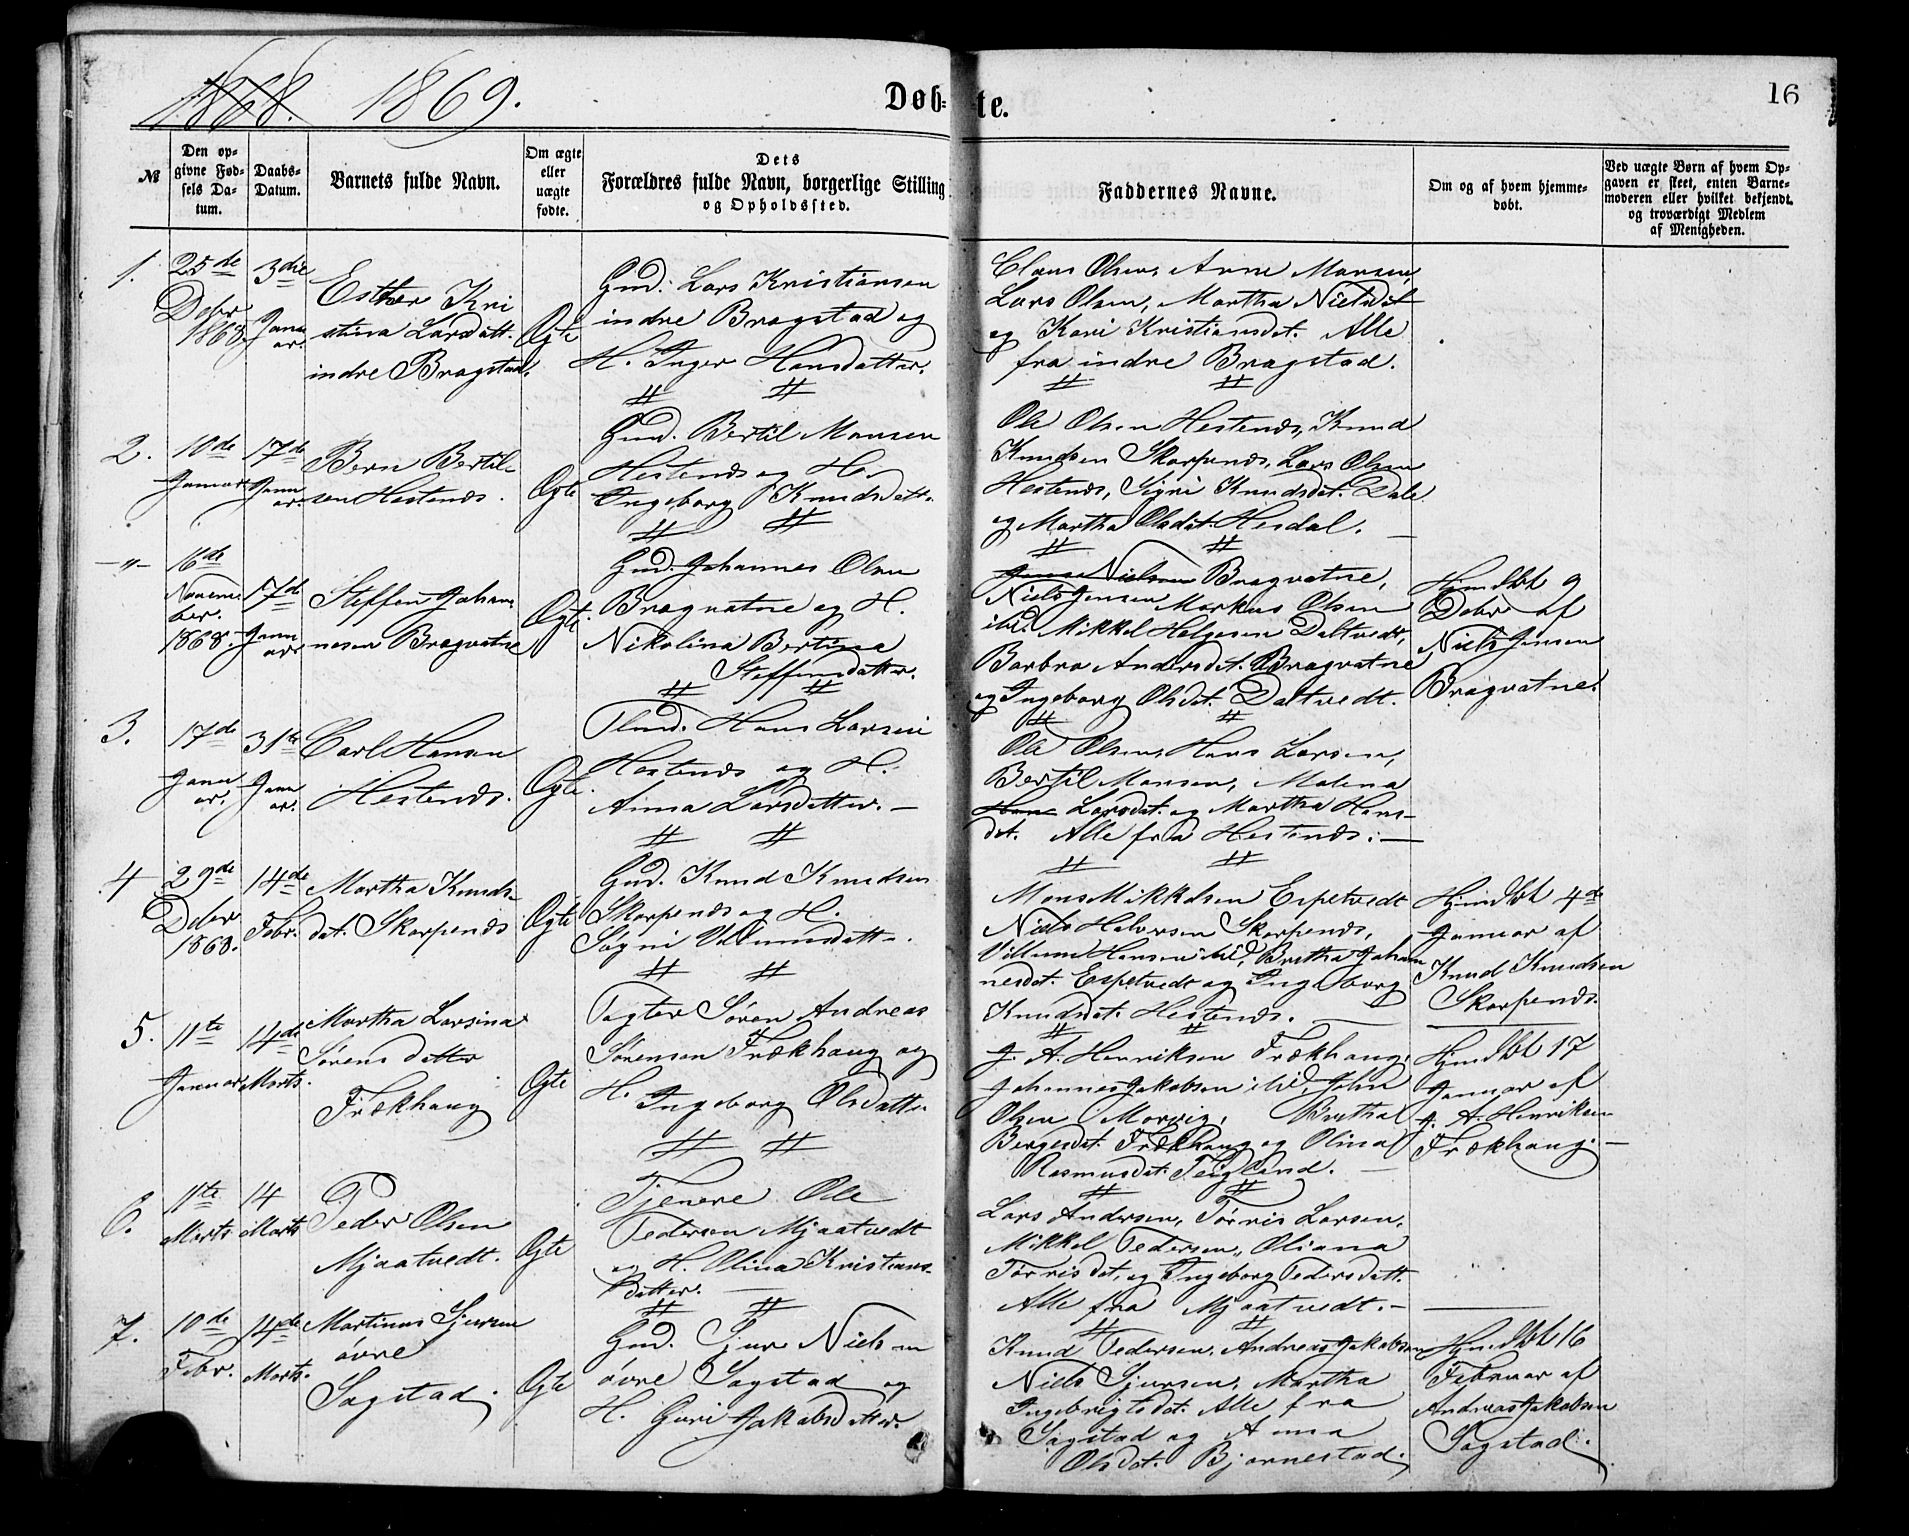 1868. 1869.
Døb-te.
16
№
Den op-
givne Fød-
sels Da-
tum.
Daabs-
Datum.
Barnets fulde Navn.
Om ægte
eller
uægte
fødte.
Dets
Forældres fulde Navn, borgerlige Stilling
og Opholdssted.
Faddernes Navne.
Om og af hvem hjemme-
døbt.
Ved uægte Børn af hvem Op-
gaven er skeet, enten Barne-
moderen eller hvilket bekjendt
og troværdigt Medlem
af Menigheden.
1.
25de
Decbr
1868.
3die
Janu
ar.
Esther Kri
stina Larsdatt.
indre Bragstad.
Ægte
Gmd. Lars Kristiansen
indre Bragstad og
H. Inger Hansdatter.
Claus Olsen, Arne Monsen,
Lars Olsen, Martha Nielsdat
og Kari Kristiansdat. Alle
fra indre Bragstad.
2.
10de
Januar
17de
Janu
ar.
Bern Bertil-
sen Hestenæs.
Ægte
Gmd. Bertil Monsen
Hestenæs og H.
Ingeborg Knudsdatt.
Ole Olsen Hestenæs, Knud
Knudsen Skorpenæs, Lars Olsen
Hestenæs, Sigri Knudsdat. Dale
og Martha Olsdat. Hesdal.
-"-
16de
Novem
ber.
1868.
17de
Janu
ar
Steffen Johan
nesen Bragvatne
Ægte
Gmd. Johannes Olsen
Bragvatne og H.
Nikolina Bertina
Steffensdatter.
Jens Nielsen Bragvatne,
Niels Jensen Markus Olsen
ibid. Mikkel Helgesen Daltvedt,
Barbra Andersdat. Bragvatne
og Ingeborg Olsdat. Daltvedt.
Hjmdbt 9
Decbr af
Niels Jensen
Bragvatne.
3.
17de
Janu
ar.
31te
Janu
ar.
Carl Hansen
Hestenæs.
Ægte.
Plmd. Hans Larsen
Hestenæs og H.
Anna Larsdatter.
Ole Olsen, Hans Larsen,
Bertil Monsen, Malena
Hans Larsdat. og Martha Hans-
dat. Alle fra Hestenæs.
4
29de
Decbr
1868.
14de
Febr.
Martha Knuds-
dat. Skorpenæs
Ægte
Gmd. Knud Knudsen
Skorpenæs og H.
Sigri Villumsdatt.
Mons Mikkelsen Espetvedt
Niels Halvorsen Skorpenæs,
Villum Hansen ibid, Bretha Johan
nesdat. Espetvedt og Ingeborg
Knudsdat. Hestenæs.
Hjmdbt 4de
Januar af
Knud Knudsen
Skorpenæs.
5.
11te
Januar
14de
Marts.
Martha Larsina
Sørensdatter
Frækhaug
Ægte
Pagter Søren Andreas
Sørensen Frækhaug og
H. Ingeborg Olsdatter
J. A. Henriksen Frækhaug,
Johannes Jakobsen ibid, John
Olsen Morvig, Bretha
Bergesdat. Frækhaug og Olina
Rasmusdat. Feigland.
Hjmdbt 17
Januar af
J. A. Henriksen
Frækhaug.
6.
11te
Marts
14
Marts
Peder Olsen
Mjaatvedt.
Ægte
Tjenere Ole
Pedersen Mjaatvedt
og H. Olina Kristians-
datter.
Lars Andersen, Tørris Larsen,
Mikkel Pedersen, Oliana
Tørrisdat. og Ingeborg Pedersdatt.
Alle fra Mjaatvedt.
7.
10de
Febr.
14de
Marts.
Martinus Sjursen
øvre
Sagstad.
Ægte
Gmd. Sjur Nielsen
øvre Sagstad og
H. Guri Jakobsdatter.
Knud Pedersen, Andreas Jakobsen
Niels Sjursen, Martha
Ingebrigtsdat. Alle fra
Sagstad og Anna
Olsdat. Bjørnestad.
Hjmdbt 16
Februar af
Andreas Jakobsen
Sagstad.